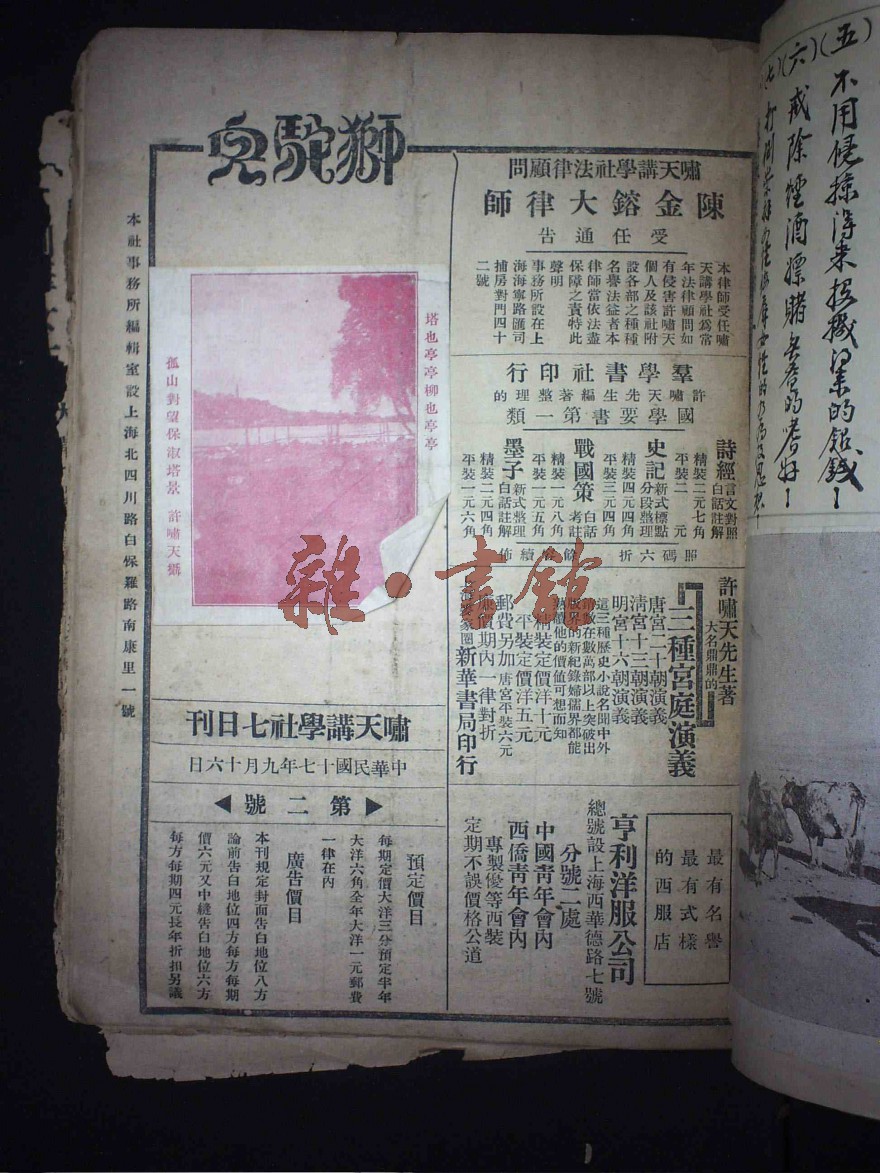 獅駝兒
塔也亭亭柳也亭亭
孤山對望保淑塔景　許嘯天攝
本社事務所編輯室設上海北四川路白保羅路南康里一號
嘯天講學社七日刊
中華民國十七年九月十六日
▶第二號◀
預定價目
每期定價大洋三分預定半年
大洋六角全年大洋一元郵費
一律在內
廣告價目
本刊規定封面告白地位八方
論前告白地位四方每方每期
價六元又中縫告白地位六方
每方每期四元長年折扣另議
嘯天講學社法律顧問
陳金鎔大律師
受任通告
本律師受任嘯
天講學社爲常
年法律顧問如
有侵害許嘯天
個人及該社附
設各部之種種
名譽法益者本
律師當依法盡
保障之責特此
聲明
事務所設在上
海海寧路匯司
捕房對門四十
二號
羣學書社印行
許嘯天先生編著整理的
國學要書第一類
詩經 言文對照 白話註解
精裝二元七角
平裝二元
史記 新式標點 分段整理
精裝四元四角
平裝三元四角
戰國策 白話考註
精裝一元八角
平裝一元五角
墨子 新式整理 白話註解
精裝二元四角
平裝一元六角
照碼六折
餘容續佈
許嘯天先生著
大名鼎鼎的
三種宮庭演義
唐宮二十朝演義
淸宮十三朝演義
明宮十六朝演義
這三種歷史小說名聞中外
銷數在數萬部以上突破出
版界的新紀錄婦孺界都能
熟讀他的價値可想而知
精裝定價洋十元
平裝定價洋五元
郵費另加 唐宮平裝六元
廉價期內一律對折
新華書局印行
最有名譽
最有式樣
的西服店
亨利洋服公司
總號設上海西華德路七號
分號二處
中國靑年會內
西僑靑年會內
專製優等西裝
定期不誤價格公道
(五)不用侵掠得來投機得來的銀錢！
(六)戒除煙酒嫖賭無益的嗜好！
(七)
雜·書館